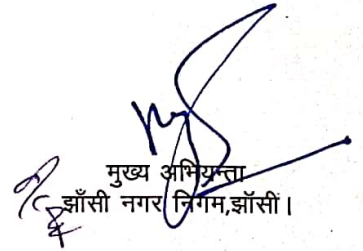 मुख्य अभियन्ता
झाँसी नगर निगम,झॉसी।